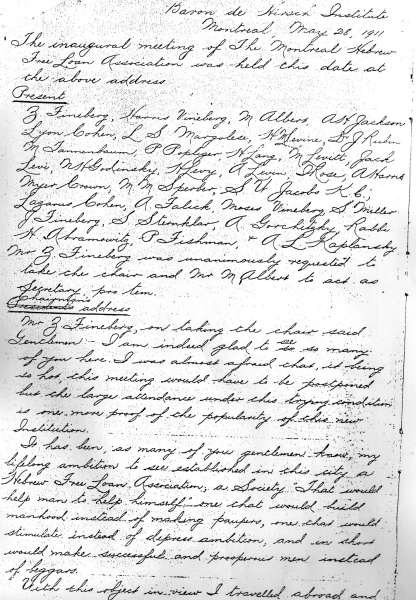 Baron de Hirsch Institute
Montreal, May 28, 1911
The inaugural meeting of The Montreal Hebrew
Free Loan Association was held this date at
the above address
Present
Z Fineberg, Harris Vineberg, M Albert, A H Jackson
Lyon Cohen, L S Margolese, H M Levine, Dr J Rubin
M Tannenbaum, P Popliger, H Lang, M Levitt, Jack
Levi, N H Godinsky, H Levy, A Levin, I Rose, A Harris
Myer Crown, M M Sperber, S W Jacobs K.C.,
Lazarus Cohen, A Falick, Moses Vineberg, S Miller
J Fineberg, S Stemklar, A Gorchitzky, Rabbi
H. Abramowitz, P Fishman, & A L Kaplansky
Mr Z Fineberg was unanimously requested to
take the chair and Mr M Albert to act as
Secretary pro tem.
Chairman's
address
Mr Z. Fineberg, on taking the chair said
Gentlemen - I am indeed glad to see so many
of you here. I was almost afraid that, it being
so hot, this meeting would have to be postponed
but the large attendance under this trying condition
is one more proof of the popularity of this new
Institution.
It has been, as many of you gentlemen know, my
lifelong ambition to see established in this city a
Hebrew Free Loan Association, a Society "That would
help man to help himself" one that would build
manhood instead of making paupers, one that would
stimulate instead of depress ambition, and in short
would make successful and prosperous men instead
of beggars.
With this object in view I travelled abroad and